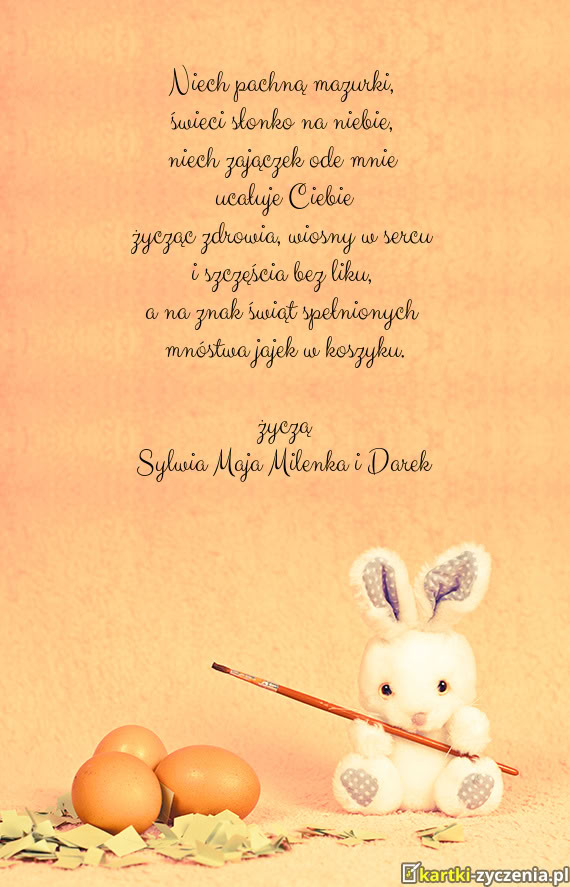 Niech pachną mazurki,
świeci słonko na niebie,
niech zajączek ode mnie
ucałuje Ciebie
życząc zdrowia, wiosny w sercu
i szczęścia bez liku,
a na znak świąt spełnionych
mnóstwa jajek w koszyku.
życzą
Sylwia Maja Milenka i Darek
kartki-zyczenia.pl